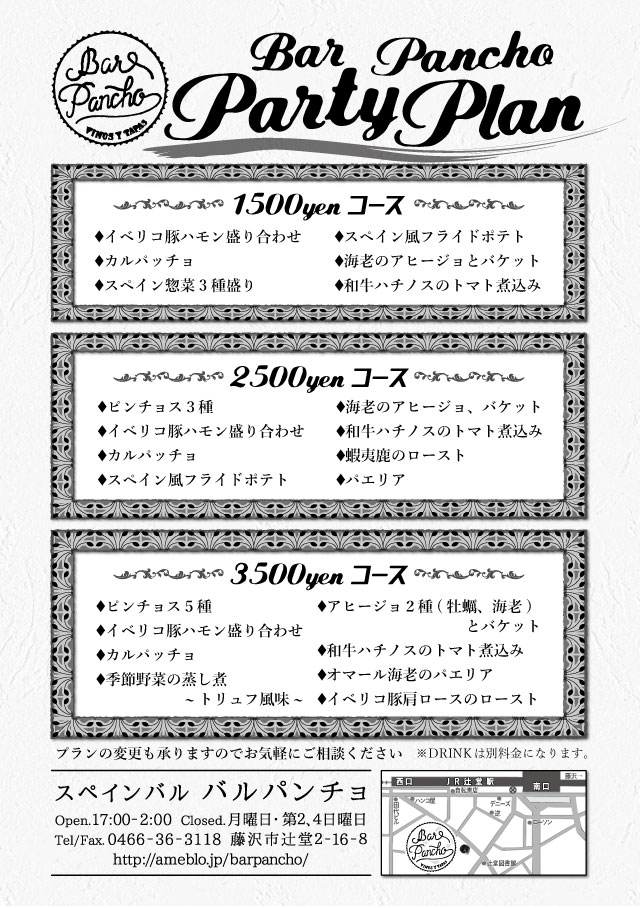 Bar Pancho
VINOS Y TAPAS
Bar Pancho
Party Plan
1500yen コース
♦イベリコ豚ハモン盛り合わせ
♦カルパッチョ
♦スペイン惣菜3種盛り
♦スペイン風フライドポテト
♦海老のアヒージョとバケット
♦和牛ハチノスのトマト煮込み
2500yen コース
♦ピンチョス3種
♦イベリコ豚ハモン盛り合わせ
♦カルパッチョ
♦スペイン風フライドポテト
♦海老のアヒージョ、バケット
♦和牛ハチノスのトマト煮込み
♦蝦夷鹿のロースト
♦パエリア
3500yen コース
♦ピンチョス5種
♦イベリコ豚ハモン盛り合わせ
♦カルパッチョ
♦季節野菜の蒸し煮
~トリュフ風味~
♦アヒージョ2種(牡蠣、海老)
とバケット
♦和牛ハチノスのトマト煮込み
♦オマール海老のパエリア
♦イベリコ豚肩ロースのロースト
プランの変更も承りますのでお気軽にご相談ください ※DRINKは別料金になります。
スペインバル バルパンチョ
Open.17:00-2:00 Closed.月曜日・第2、4日曜日
Tel/Fax. 0466-36-3118 藤沢市辻堂2-16-8
http://ameblo.jp/barpancho/
藤沢→
西口 JR辻堂駅 南口
自転車店
ハンコ屋
デニーズ
田代ビル
逆
ローソン
Bar Pancho
VINOS Y TAPAS
辻堂図書館